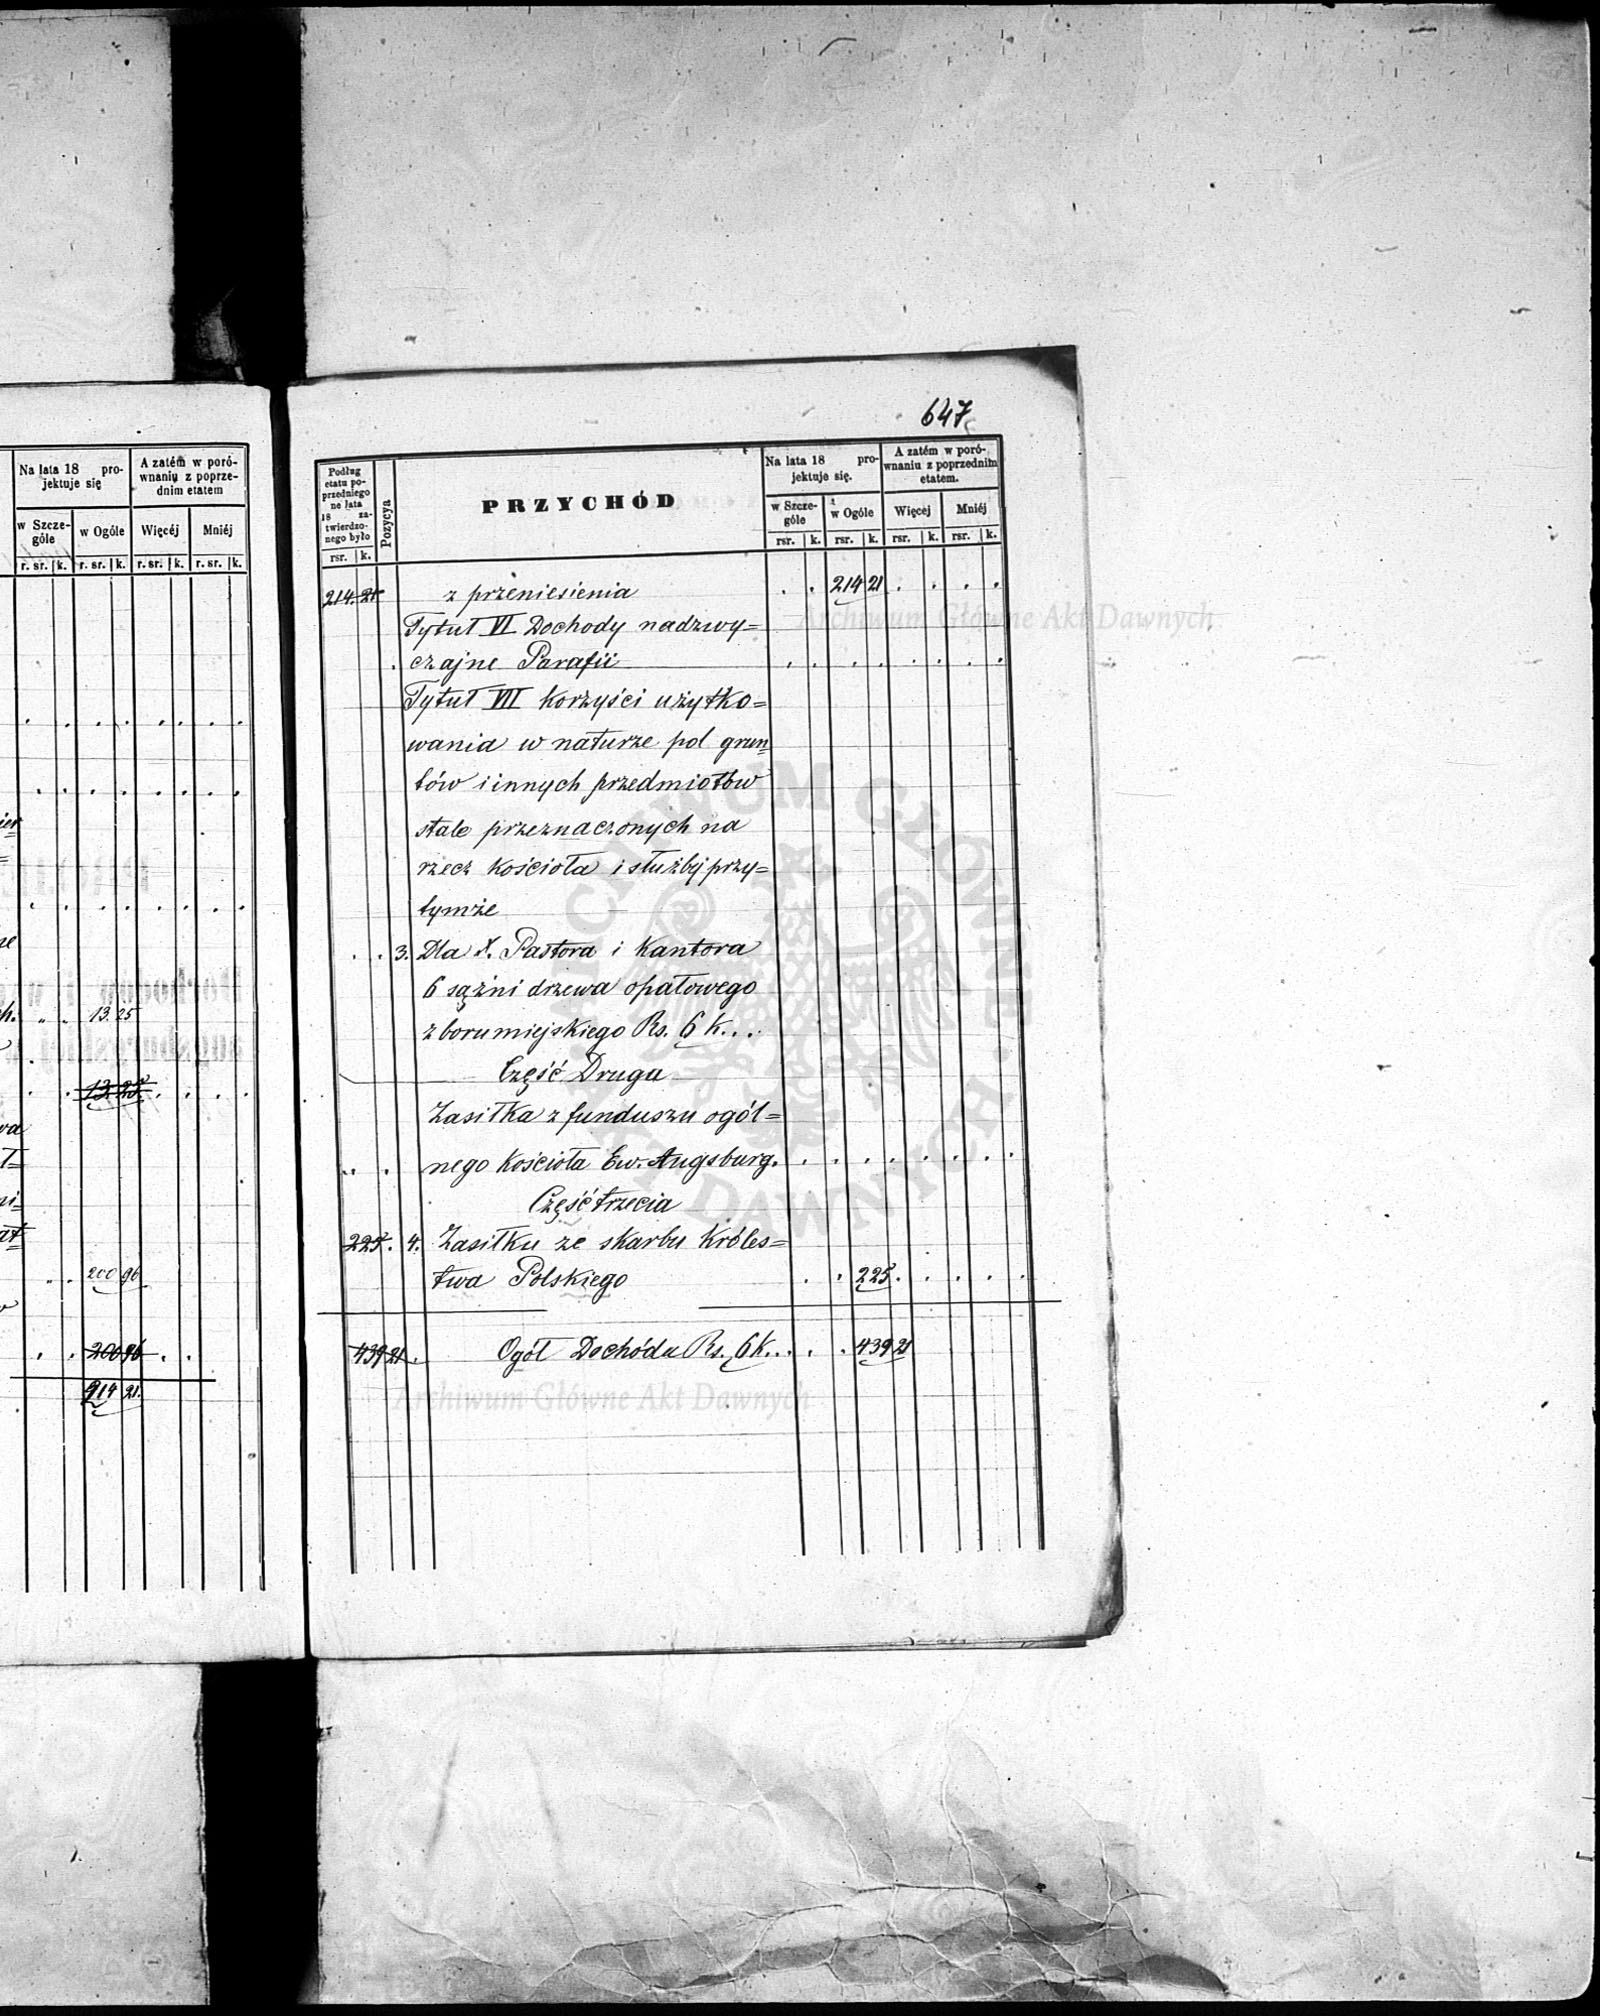 Na lata 18 pro-
jektuje się
A zatém w poró-
wnaniu z poprze-
dnim etatem
w Szcze-
góle
w Ogóle
Więcéj
Mniéj
r. sr. k. r. sr. k. r. sr. k. r. sr. k.
13. 25
13. 25
200 96
200 96
214 21.
647
Podług
etatu po-
przedniego
na lata
18 za-
twierdzo-
nego było
rsr. k.
Pozycya
PRZYCHÓD
Na lata 18 pro-
jektuje się.
A zatém w poró-
wnaniu z poprzednim
etatem.
w Szcze-
góle
w Ogóle
Więcej
Mniéj
rsr. k. rsr. k. rsr. k. rsr. k.
214. 21 z przeniesienia . . 214 21 . . . .
Tytuł VI Dochody nadzwy=
czajne Parafii . . . . . . . .
Tytuł VII korzyści użytko=
wania w naturze pol grun=
tów i innych przedmiotów
stale przeznaczonych na
rzecz kościoła i służby przy=
tymże
. . 3. Dla X. Pastora i Kantora
6 sążni drzewa opałowego
z boru miejskiego Rs. 6 k. . .
Część Druga
Zasiłka z funduszu ogól=
nego kościoła Ew. Augsburg. . . . . . . . .
Część trzecia
225 . 4. Zasiłku ze skarbu Króles=
twa Polskiego . . 225 . . . . .
439 21 . Ogół Dochódu Rs. 6 K. . . . . 439 21
Archiwum Główne Akt Dawnych
ARCHIWUM GŁÓWNE AKT DAWNYCH
Archiwum Główne Akt Dawnych